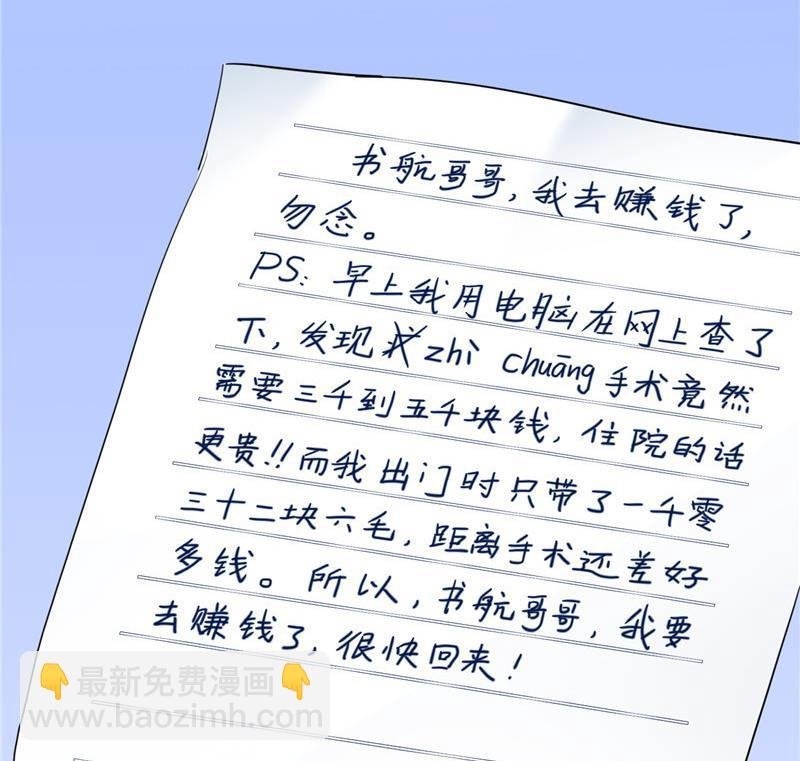 书航哥哥，我去赚钱了，
勿念。
PS：早上我用电脑在网上查了
下，发现zhì chuāng手术竟然
需要三千到五千块钱，住院的话
更贵!!而我出门时只带了一千零
三十二块六毛，距离手术还差好
多钱。所以，书航哥哥，我要
去赚钱了，很快回来！
👇最新免费漫画👇
www.baozimh.com